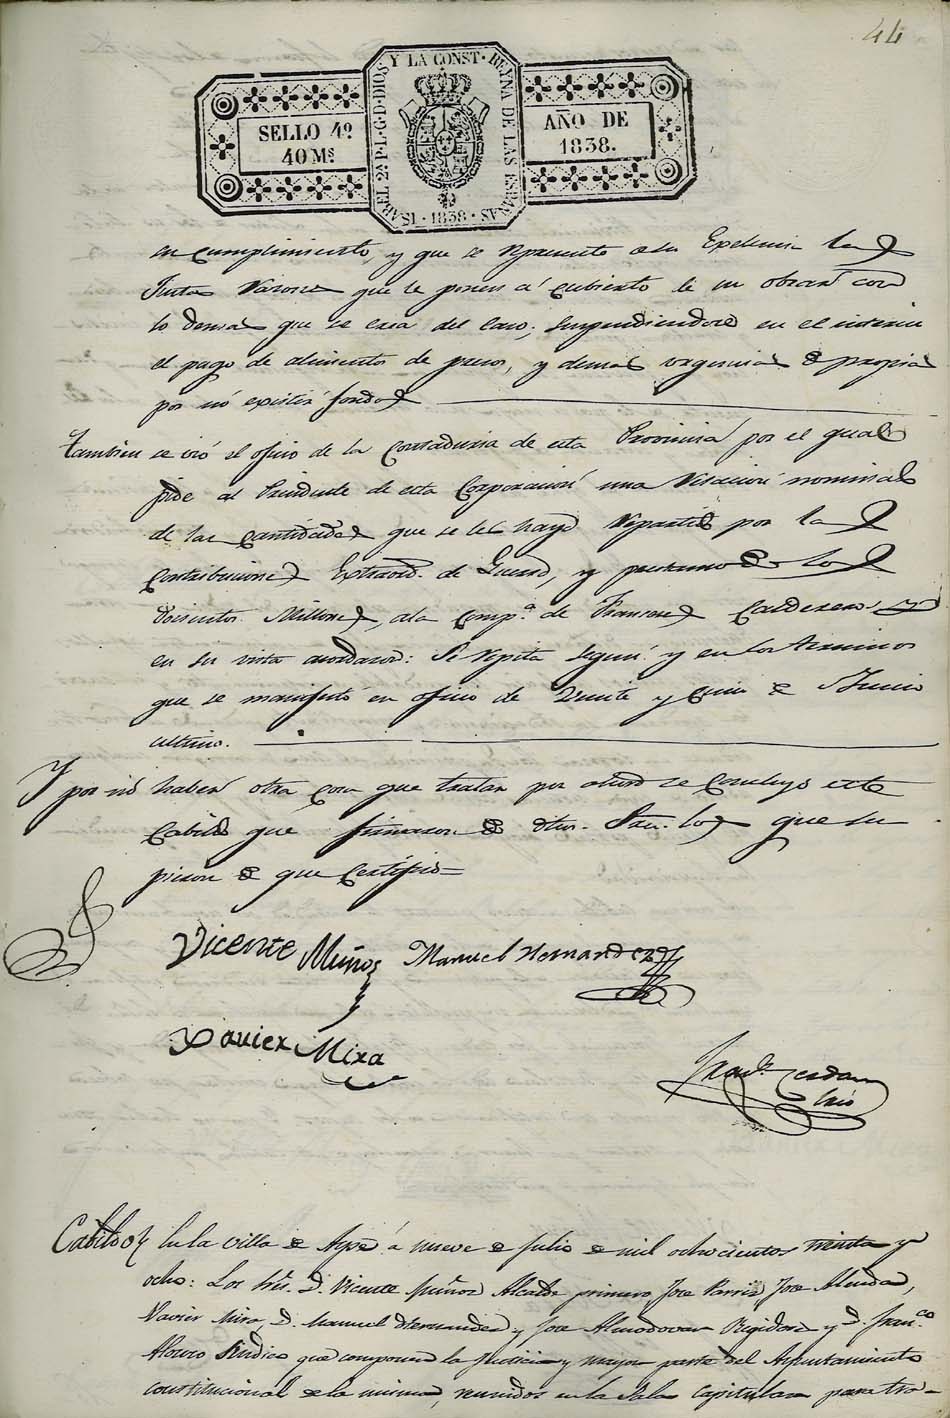 44
SELLO 4º
40 Ms
ISABEL 2ª P.L.G.D.DIOS Y LA CONST. REYNA DE LAS ESPAÑAS · 1838 ·
AÑO DE
1838.
su cumplimiento, y que se represente a su Excelencia las
Justas razones que le ponen á cubierto de su obrar con
lo demas que se crea del caso; suspendiendose en el interin
el pago de alimentos de presos, y demas urgencias de propios
por nó existir fondos
Tambien se vió el oficio de la Contaduria de esta Provincia por el qual
pide al Presidente de esta Corporacion una relacion nominal
de las cantidades que se les haya repartido por las
Contribuciones Extraord. de Guerra, y prestamo de los
doscientos Millones, a la Comp.ª de Calderero y
en su vista acordaron: Se repita segun y en los terminos
que se manifestó en oficio de Veinte y cinco de Junio
ultimo.
Y por nó haber otra cosa que tratar por ahora se concluyó este
Cabildo que firmaron de dhos. Sres. los que su
pieron de que Certifico=
Vicente Muñoz Manuel Hernandez
Xavier Mira
Fran.co Cerdan
Srio
Cabildo En la villa de Aspe á nueve de Julio de mil ochocientos treinta y
ocho: Los Sres. D. Vicente Muñoz Alcalde primero Jose Jose Almodar,
Xavier Mira, D. Manuel Hernandez y Jose Almodovar Regidores y D. Fran.co
Alonso Sindico que componen la Justicia y mayor parte del Ayuntamiento
constitucional de la misma, reunidos en la Sala Capitular para tra-